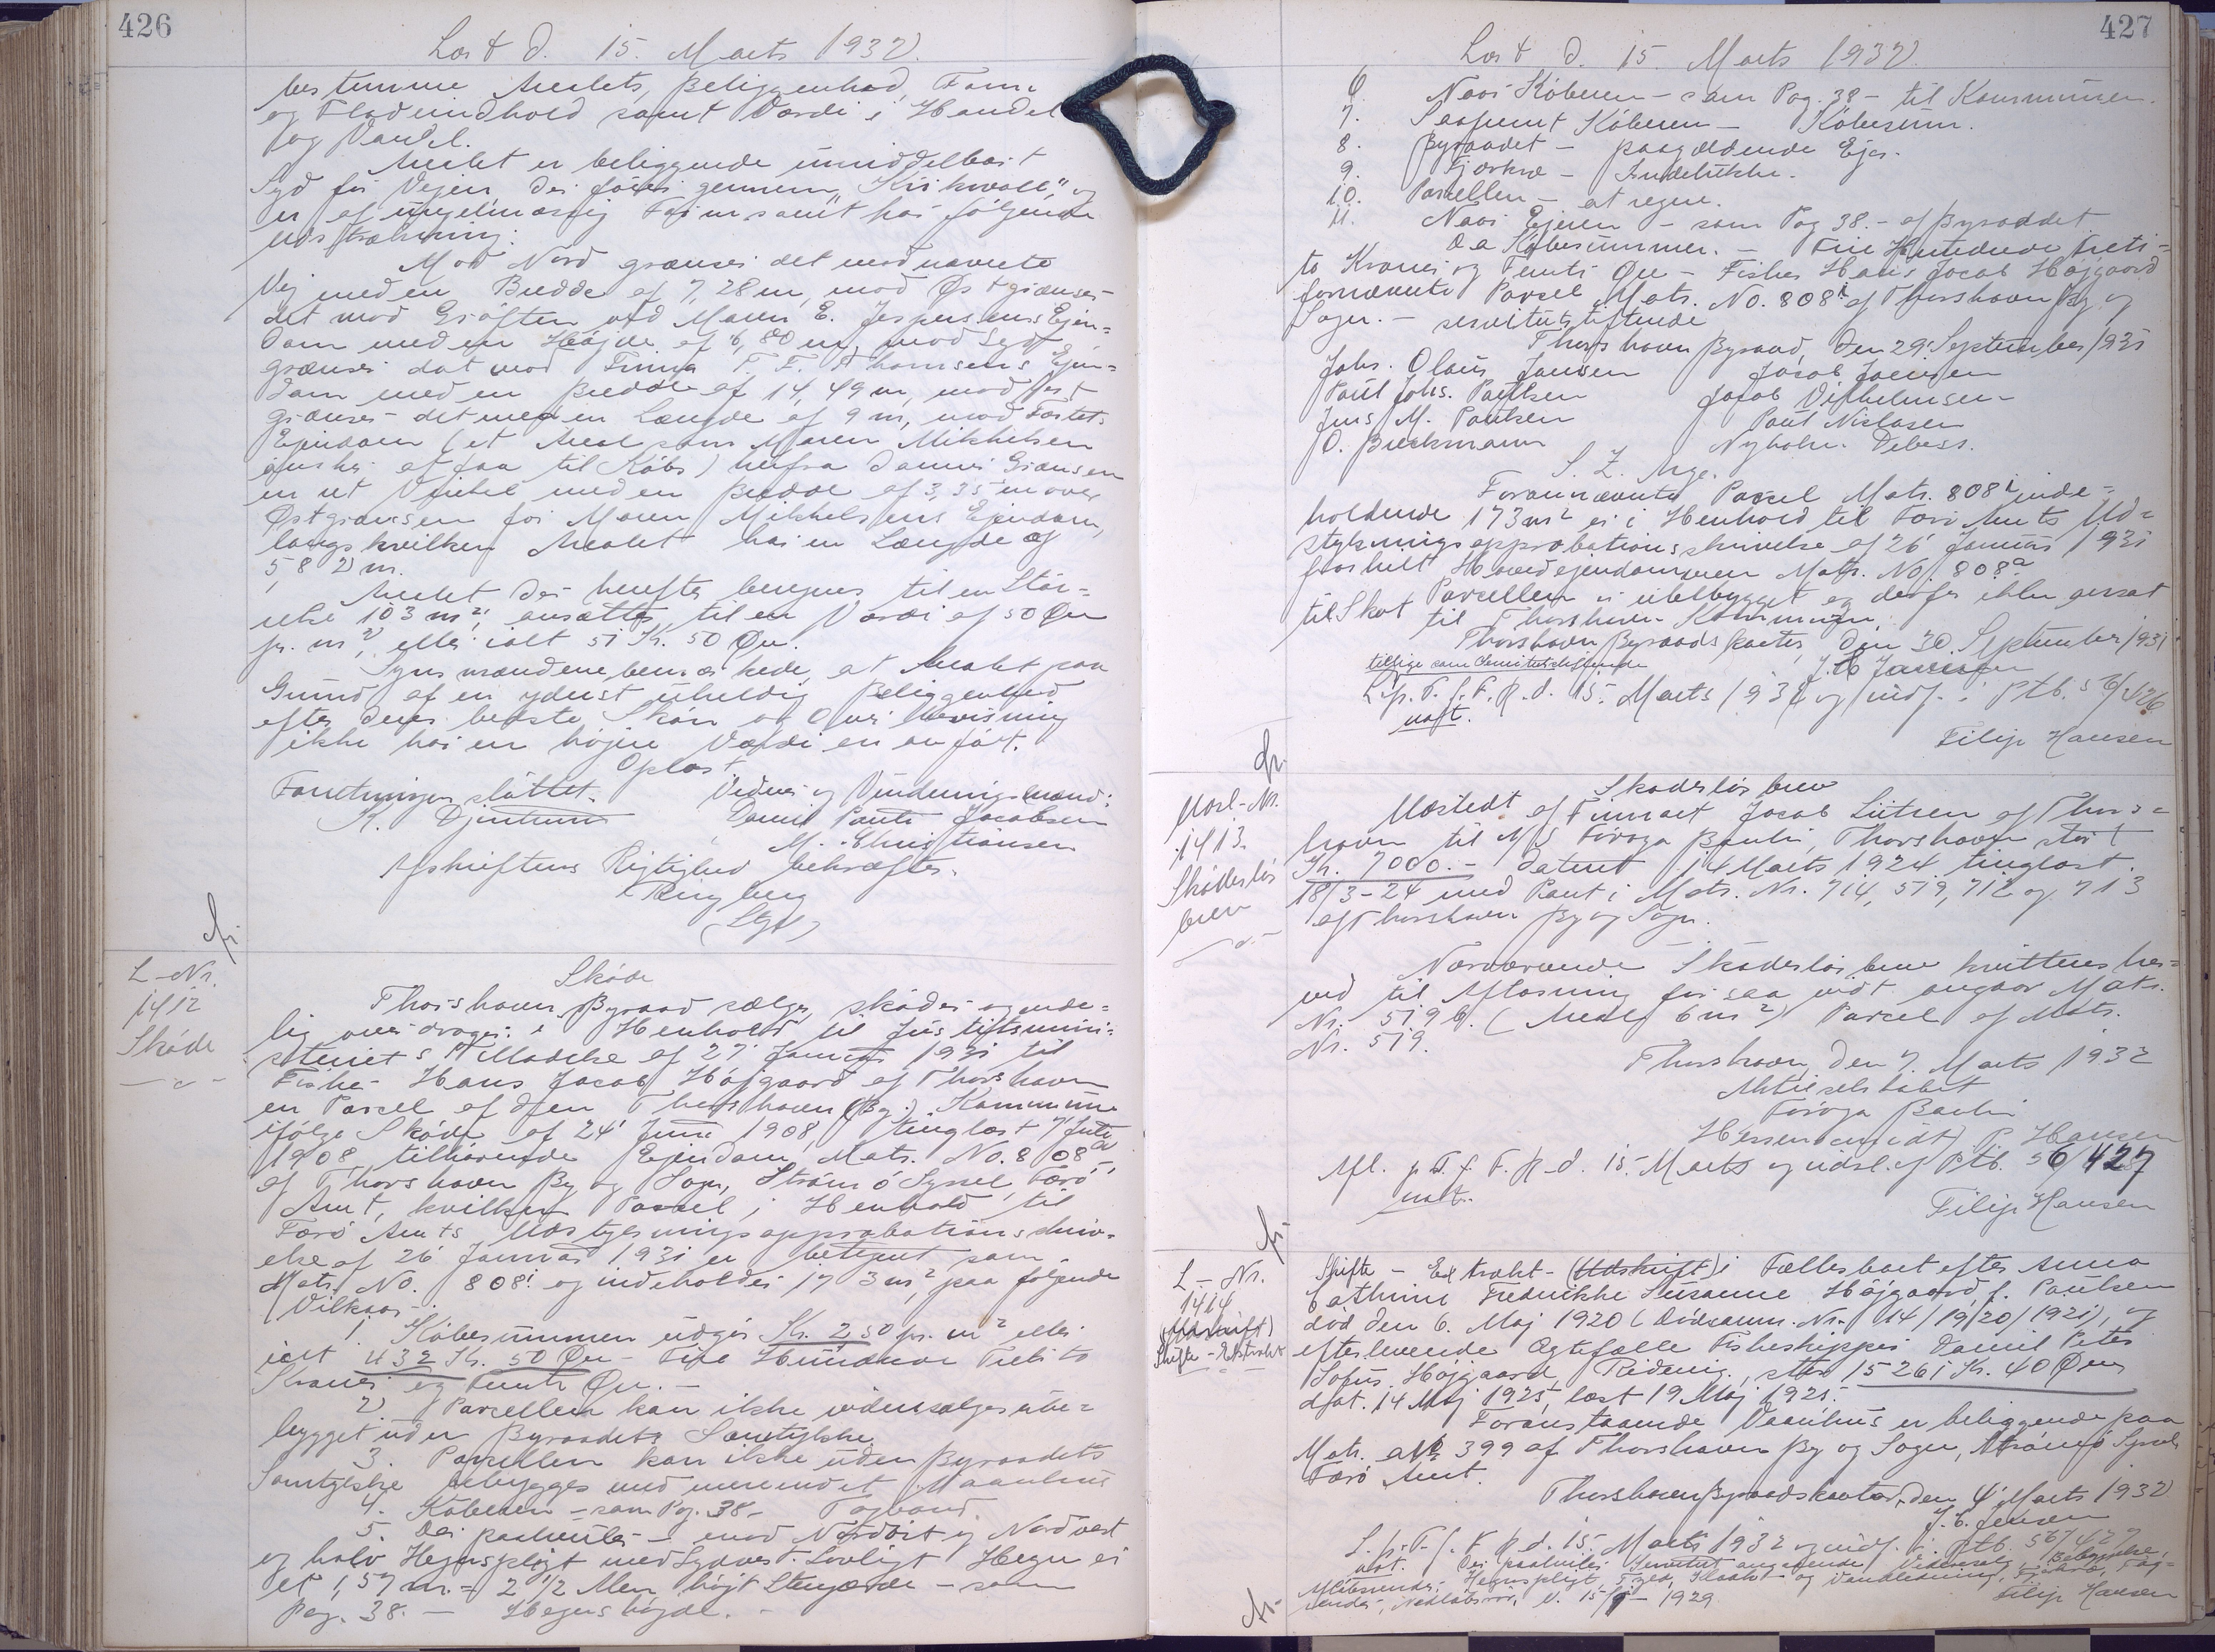 426
Læst d. 15. Marts 1932.
bestemme Arealets Beliggenhed, Form
og Fladeindhold samt Værdi i Handel
og Vandel.
Arealet er beliggende umiddelbart
Syd for Vejen der fører gennem og
er af uregelmæssig Form samt har følgende
Udstrækning:
Mod Nord grænser det mod nævnte
Vej med en Bredde af 7,28 m, mod Øst grænser
det mod Grøften ved Maren E. Jespersens Ejen=
dom med en Højde af 6,80 m, mod Syd
grænser det mod T. F. Thomsens Ejen=
dom med en Bredde af 14,49 m, mod Vest
grænser det med en Længde af 9 m, mod
Ejendom (et Areal som Maren Mikkelsen
ønsker at faa til Købs) herfra danner Grænsen
en ret Vinkel med en Bredde af 3,35 m over
Østgrænsen for Maren Mikkelsens Ejendom,
langs hvilken Arealet har en Længde af
5,82 m.
Arealet der herefter beregnes til en Stør=
relse 103 m², ansættes til en Værdi af 50 Øre
pr. m², eller ialt 51 Kr. 50 Øre.
Synsmændene bemærkede, at Arealet paa
Grund af en yderst uheldig Beliggenhed
efter deres bedste Skøn og Overbevisning
ikke har en højere Værdi en anført.
Oplæst
Forretningen sluttet. Vidner og Vurderingsmænd:
K. Djurhuus Daniel Pauli Jacobsen
M. Christiansen
Afskriftens Rigtighed bekræftes.
Ringberg
(Stpl)
L-Nr.
1412
Skøde
Skøde
Thorshavn Byraad sælger, skøder og ende=
lig overdrager i Henhold til Justitsmini=
steriets Tilladelse af 27 Januar 1931 til
Fisker Hans Jacob Højgaard af Thorshavn
en Parcel af den Thorshavn (By) Kommune
ifølge Skøde af 24' Juni 1908, tinglæst 7 Juli
1908 tilhørende Ejendom, Matr. No. 808a
af Thorshavn By og Sogn, Strømø Syssel, Færø
Amt, hvilken Parcel i Henhold til
Færø Amts Udstykningsapprobationsskriv=
else af 26 Januar 1931 er betegnet som
Matr. No. 808i og indeholder 173 m², paa følgende
Vilkaar:
1. Købesummen udgør Kr. 2,50 pr. m² eller
ialt 432 Kr. 50 Øre - Fire Hundrede Treti to
Kroner og Femti Øre.-
2. Parcellen kan ikke videresælges ube=
bygget uden Byraadets Samtykke.
3. Parcellen kan ikke uden Byraadets
Samtykke bebygges med mere end et Vaanhus
4. Køberen - som Pag. 38 - Tagvand.
5. Der paahviler - mod Nordøst og Nordvest
og halv Hegnspligt mod Sydvest. Lovligt Hegn er
et 1,57 m. = 2 1/2 Alen højt Stengærde - som
Pag. 38. - Hegnshøjde. -
427
Læst d. 15. Marts 1932.
6. Naar Køberen - som Pag. 38 - til Kommunen.
7. Køberen - Købesum.
8. Byraadet - paagældende Ejer.
9. Fjerkræ -
10. Parcellen - at regne.
11. Naar Ejeren - som Pag 38. - af Byraadet
Købesummen. - Fire Hundrede Treti=
to Kroner og Femti Øre - Fisker Hans Jacob Højgaard
fornævnte Parcel Matr. No. 808i af Thorshavn By og
Sogn. - servitutstiftende
Thorshavn Byraad, den 29' September 1931
Johs. Olaus Jansen Jacob Joensen
Paul Johs. Poulsen Jacob Vilhelmsen
Jens M. Poulsen Poul Niclasen
O. Bærkmann Nyholm Debess.
S. Z. Arge.
Forannævnte Parcel Matr. 808i inde=
holdende 173 m² er i Henhold til Færø Amts Ud=
stykningsapprobationsskrivelse af 26' Januar 1931
fraskilt Hovedejendommen Matr. No. 808a
Parcellen er ubebygget og derfor ikke ansat
til Skat til Thorshavn Kommune.
Thorshavn Byraadskontor, den 30. September 1931
tillige som servitutstiftende J. C. Jensen
L. p. T. f. F. R. d. 15. Marts 1932 og indf. i Ptb. 56/426
naft.
Filip Hansen
Uoml-Nr.
1413
Skadesløs
brev
Skadesløsbrev
Udstedt af Firmaet Jacob Lützen af Thors=
havn til A/S Føroya Banki, Thorshavn, stort
Kr. 7000.- dateret 14 Marts 1924 tinglæst
18/3-24 med Pant i Matr. Nr. 714, 519, 712 og 713
af Thorshavn By og Sogn.
Nærværende Skadesløsbrev kvitteres her=
ved til Aflæsning for saa vidt angaar Matr.
Nr. 519 b. (Areal 6 m²) Parcel af Matr.
Nr. 519.
Thorshavn, den 7. Marts 1932
Aktieselskabet
Føroya Banki
P. Hansen
Afl. p. T. f. F. R. d. 15. Marts og udsl. af Ptb. 56/427
naft.
Filip Hansen
L-Nr.
1414
(Udskrift)
Skifte-Ekstrakt
Skifte - Extrakt - (Udskrift) i Fællesboet efter Anna
Cathrine Fredrikke Susanne Højgaard, f. Poulsen
død den 6. Maj 1920 (Dødsanm. Nr. 14/19/20/1921), og
efterlevende Ægtefælle Fiskeskipper Daniel Peter
Sofus Højgaard, stor 15261 Kr. 40 Øre
dat. 14 Maj 1925, læst 19 Maj 1925.
Foranstaaende Vaanhus er beliggende paa
Matr. No 399 af Thorshavn By og Sogn, Strømø Syssel
Færø Amt.
Thorshavn Byraadskontor, den 4' Marts 1932
J. C. Jensen
L. p. T. f. F. R. d. 15. Marts 1932 og indf. i Ptb. 56/427
naft. Der paahviler Servitut angaaende Videresalg, Bebyggelse,
Hegnspligt, Kloakol- og Vandledning, Fjerkræ, Tag=
render, Nedløbsrør, 1929
Filip Hansen